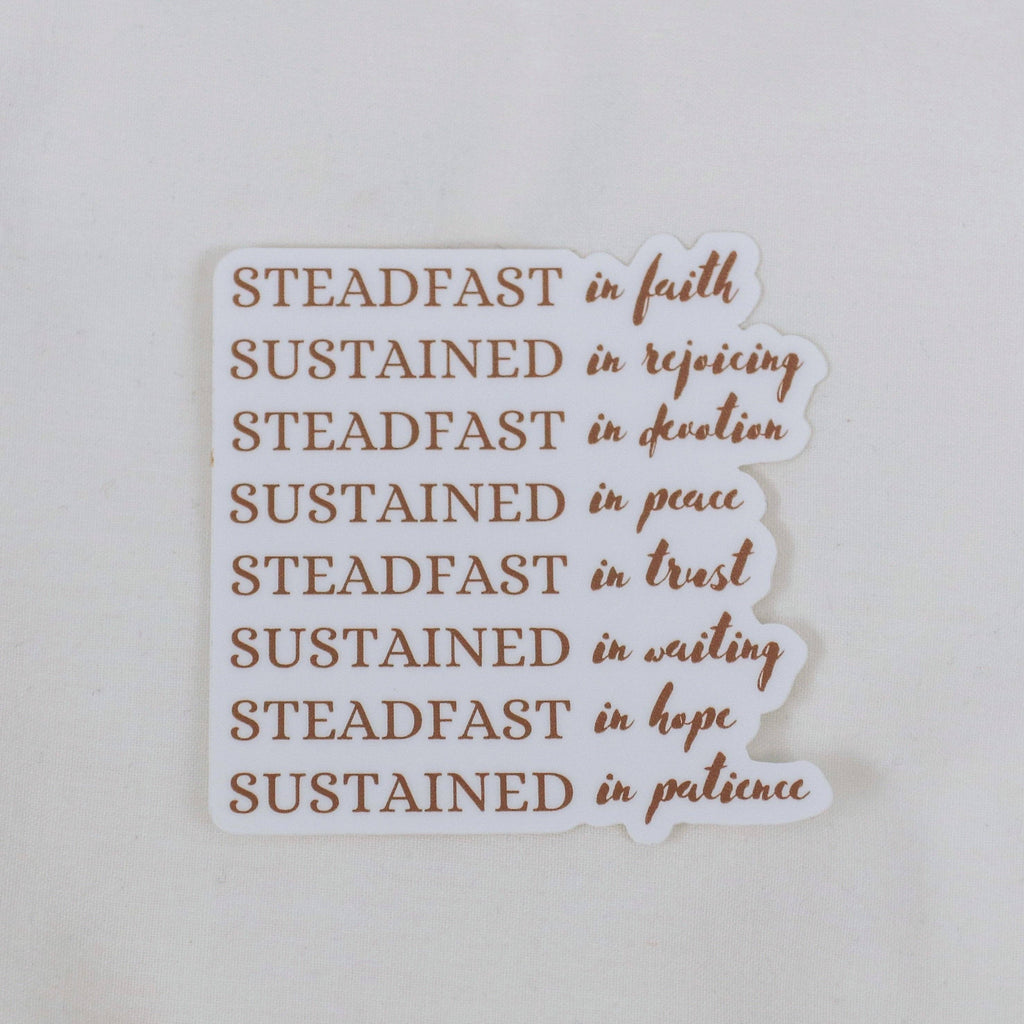 STEADFAST in faith
SUSTAINED in rejoicing
STEADFAST in devotion
SUSTAINED in peace
STEADFAST in trust
SUSTAINED in waiting
STEADFAST in hope
SUSTAINED in patience